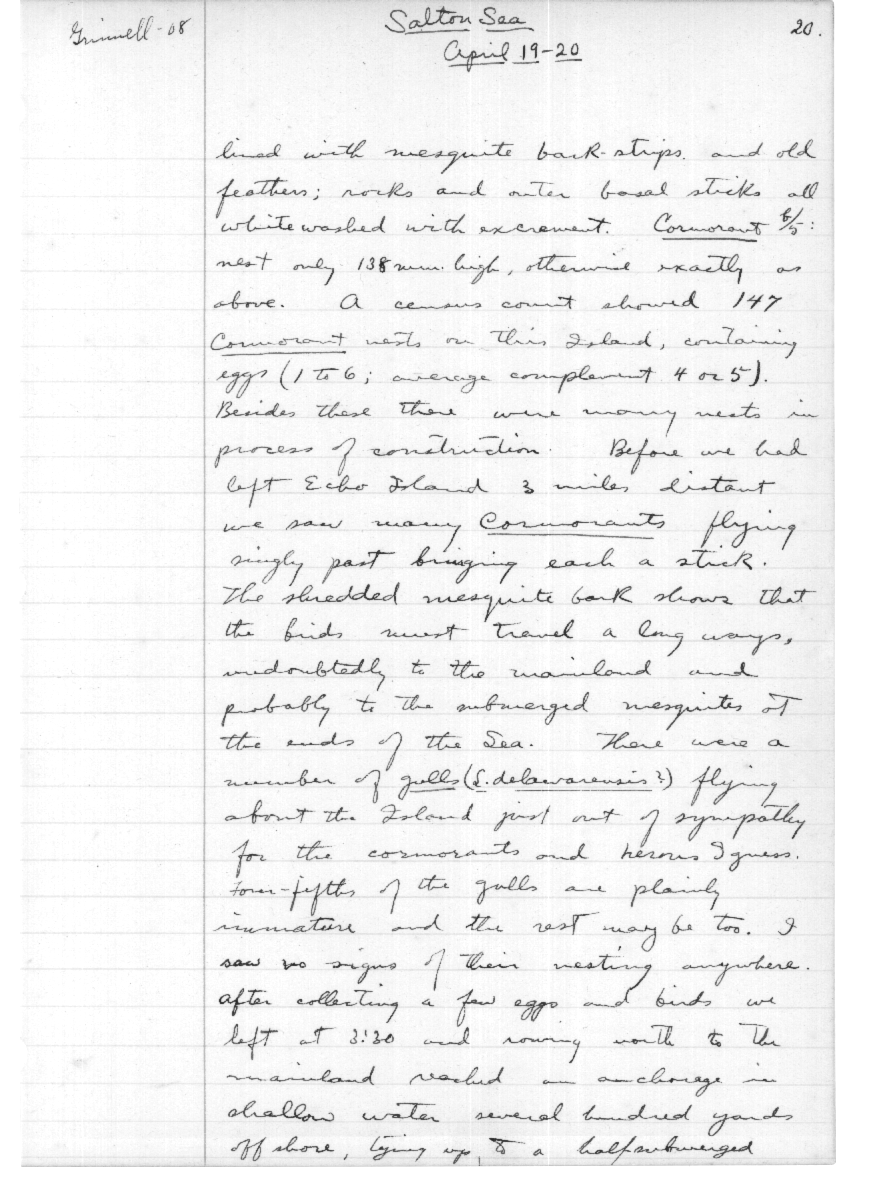 Grinnell-08
Salton Sea
20.
April 19-20
lined with mesquite bark-strips. and old
feathers; rocks and outer basal sticks all
whitewashed with excrement. Cormorant 6/5:
nest only 138 mm. high, otherwise exactly as
above. A census count showed 147
Cormorant nests on this Island, containing
eggs (1 to 6; average complement 4 or 5).
Besides these there were many nests in
process of construction. Before we had
left Echo Island 3 miles distant
we saw many Cormorants flying
singly past bringing each a stick.
The shredded mesquite bark shows that
the birds must travel a long ways,
undoubtedly to the mainland and
probably to the submerged mesquites at
the ends of the Sea. There were a
number of gulls (L. delawarensis?) flying
about the Island just out of sympathy
for the cormorants and herons I guess.
Four-fifths of the gulls are plainly
immature and the rest may be too. I
saw no signs of their nesting anywhere.
After collecting a few eggs and birds we
left at 3:30 and rowing north to the
mainland reached an anchorage in
shallow water several hundred yards
off shore, tying up to a half submerged